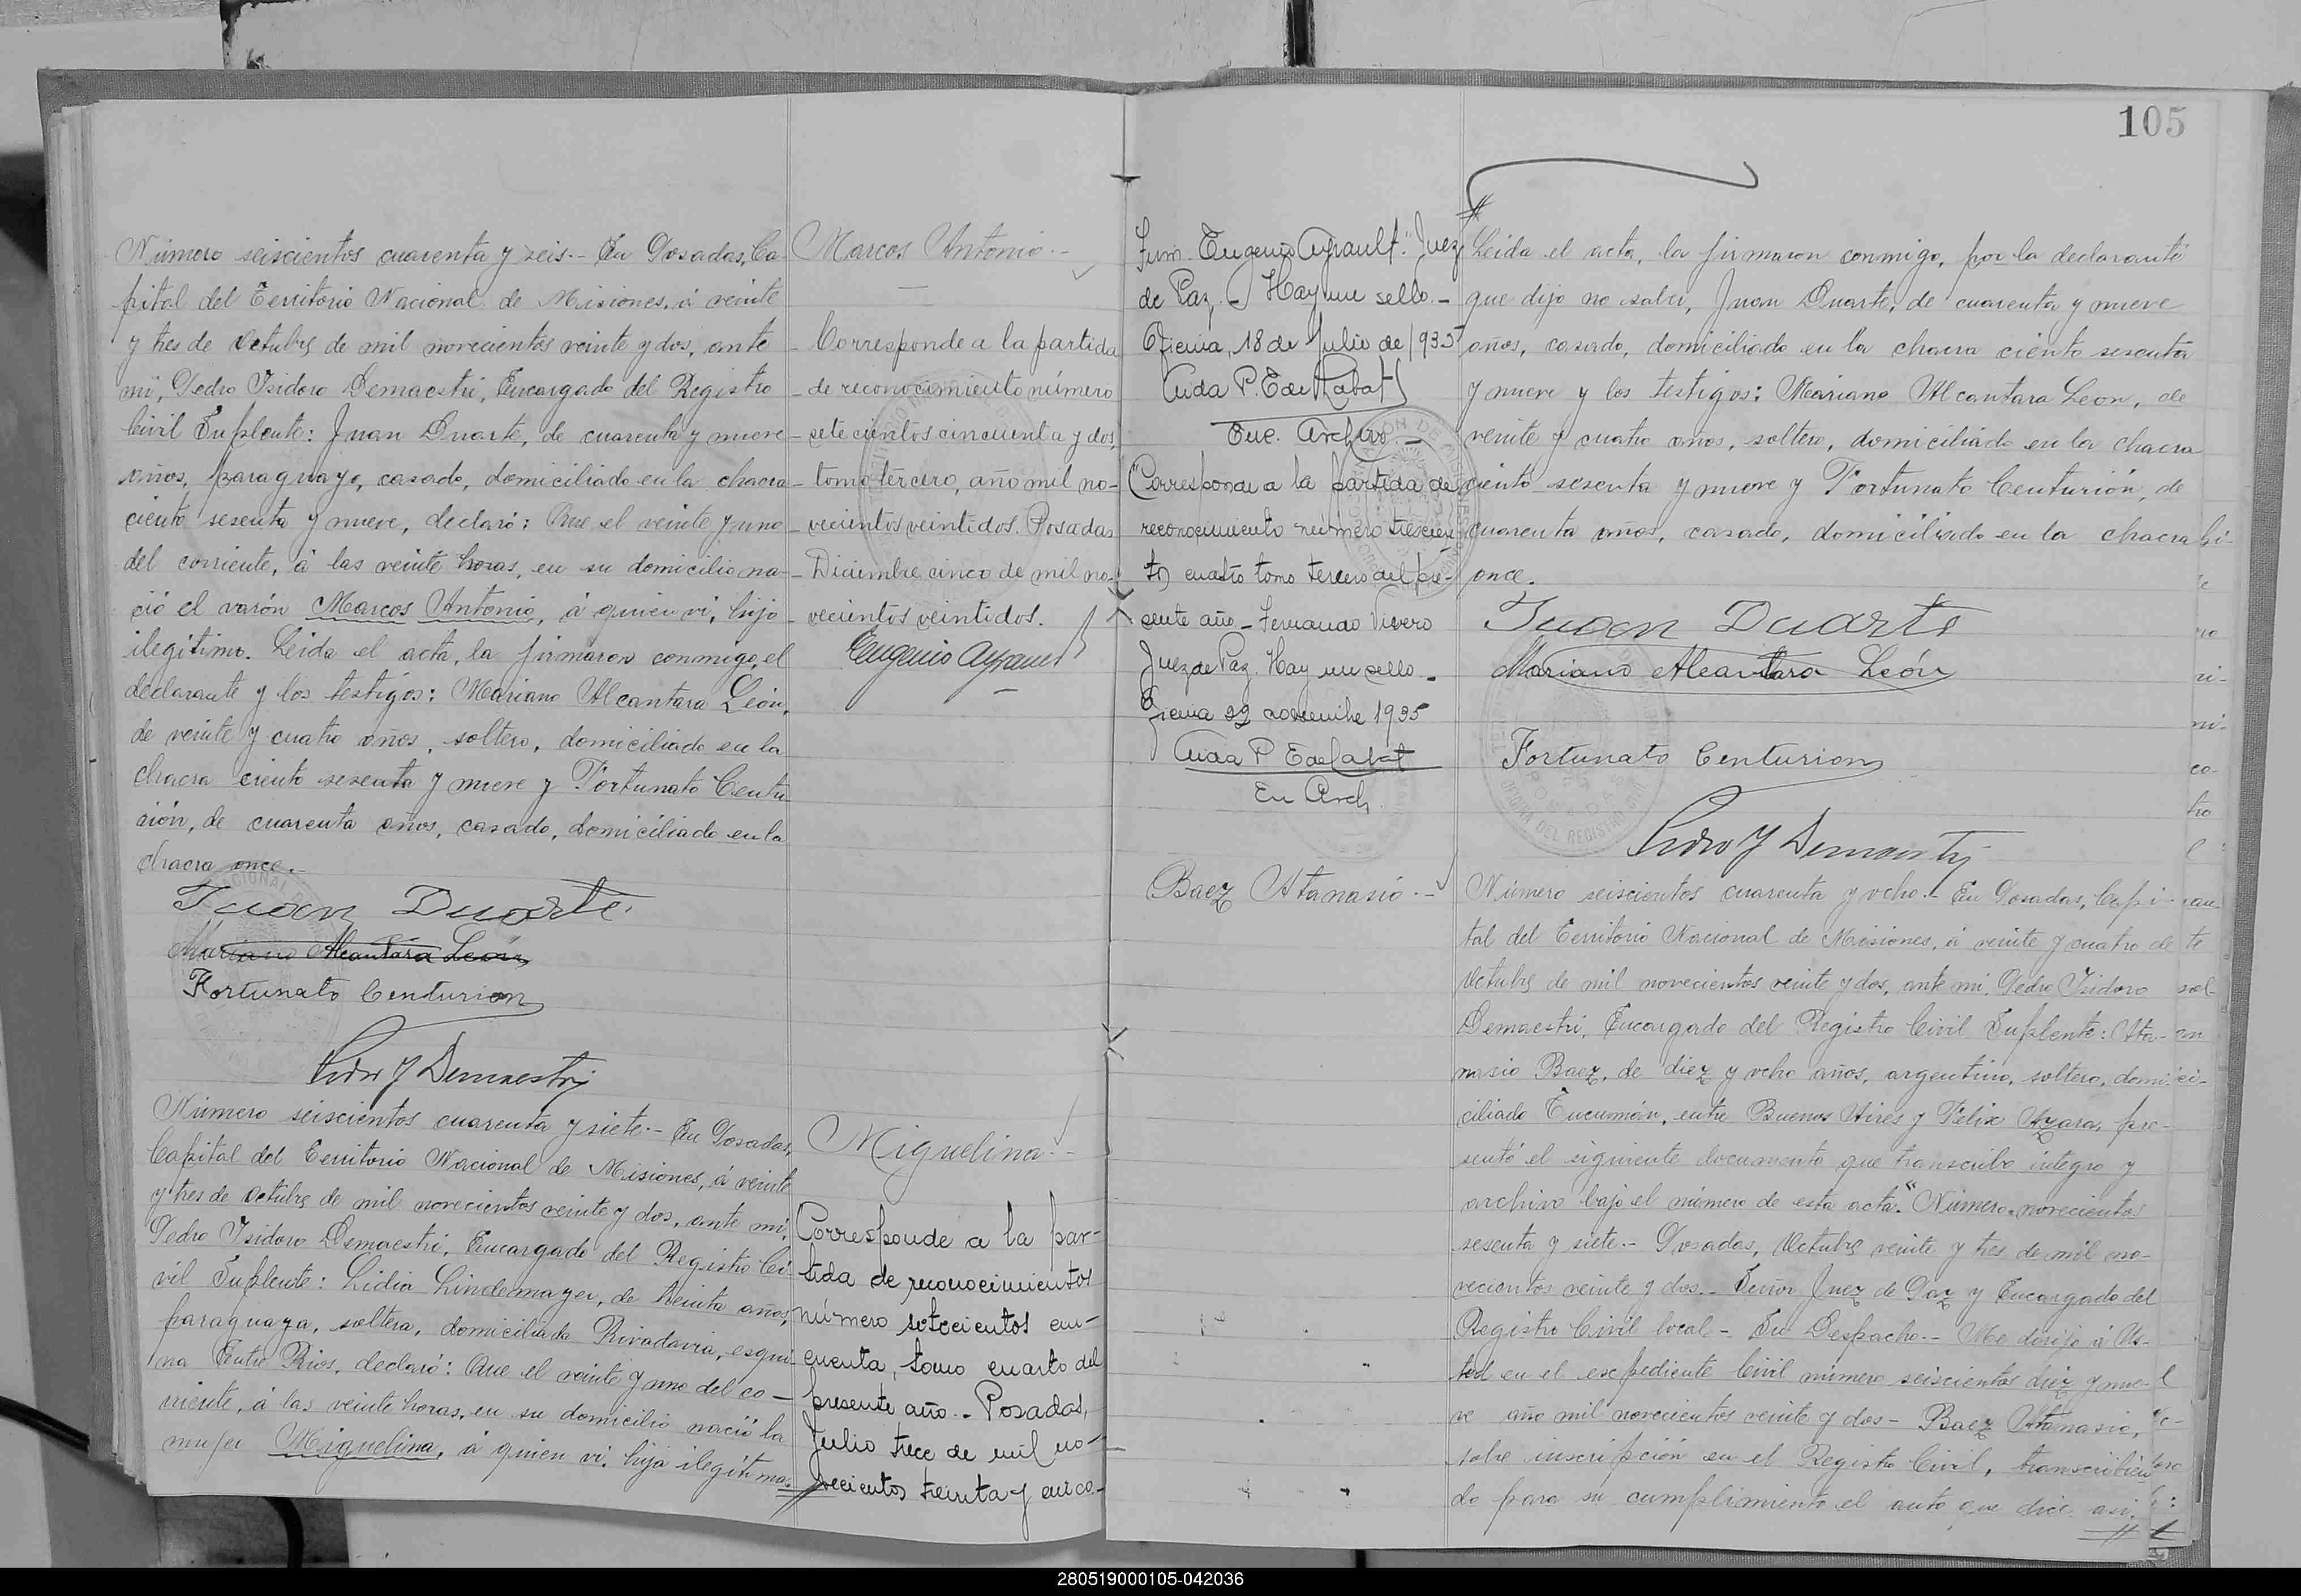 Número seiscientos cuarenta y seis.- En Posadas, Ca-
pital del Territorio Nacional de Misiones, á veinte
y tres de Octubre de mil novecientos veinte y dos, ante
mi, Pedro Isidoro Demaestri, Encargado del Registro
Civil Suplente: Juan Duarte, de cuarenta y nueve
años, paraguayo, casado, domiciliado en la chacra
ciento sesenta y nueve, declaró: Que el veinte y uno
del corriente, á las veinte horas, en su domicilio na-
ció el varón Marcos Antonio, á quien vi, hijo
ilegítimo. Leida el acta, la firmaron conmigo, el
declarante y los testigos: Mariano Alcantara León,
de veinte y cuatro años, soltero, domiciliado en la
chacra ciento sesenta y nueve y Fortunato Centu
rión, de cuarenta años, casado, domiciliado en la
chacra once.
Juan Duarte.
Mariano Alcantara León
Fortunato Centurion
Pedro Y Demaestri
Marcos Antonio.-
Corresponde a la partida
de reconocimiento número
setecientos cincuenta y dos,
tomo tercero, año mil no-
vecientos veintidos. Posadas
Diciembre cinco de mil no-
vecientos veintidos.
Eugenio Ayrault
Número seiscientos cuarenta y siete.- En Posadas,
Capital del Territorio Nacional de Misiones, á veinte
y tres de Octubre de mil novecientos veinte y dos, ante mi,
Pedro Isidoro Demaestri, Encargado del Registro Ci-
vil Suplente: Lidia Lindemayer, de treinta años,
paraguaya, soltera, domiciliada Rivadavia, esqui-
na Entre Rios, declaró: Que el veinte y uno del co-
rriente, á las veinte horas, en su domicilio nació la
mujer Miguelina, á quien vi, hija ilegítima.
Miguelina.-
Corresponde a la par-
tida de reconocimientos
número setecientos cin-
cuenta, tomo cuarto del
presente año.- Posadas,
Julio trece de mil no-
vecientos treinta y cinco.-
105
Firm. Eugenio Ayrault." Juez
de Paz.- Hay un sello.-
Oficina, 18 de Julio de 1935
Aida P. E de Rabat
Enc. Archivo.-
"Corresponde a la partida de
reconocimiento número trescien-
tos cuatro tomo tercero del pre-
sente año - Fernando Vivero
Juez de Paz. Hay un sello.-
22 noviembre 1935
Aida P E de Rabat
En Arch.
Leida el acta, la firmaron conmigo, por la declarante
que dijo no saber, Juan Duarte, de cuarenta y nueve
años, casado, domiciliado en la chacra ciento sesenta
y nueve y los testigos: Mariano Alcantara Leon, de
veinte y cuatro años, soltero, domiciliado en la chacra
ciento sesenta y nueve y Fortunato Centurión, de
cuarenta años, casado, domiciliado en la chacra
once.
Juan Duarte
Mariano Alcantara León
Fortunato Centurion
Pedro Y Demaestri
Baez Atanasio.-
Número seiscientos cuarenta y ocho.- En Posadas, Capi-
tal del Territorio Nacional de Misiones, á veinte y cuatro de
Octubre de mil novecientos veinte y dos, ante mi, Pedro Isidoro
Demaestri, Encargado del Registro Civil Suplente: Ata-
nasio Baez, de diez y ocho años, argentino, soltero, domi-
ciliado Tucumán, entre Buenos Aires y Felix Azara, pre-
sentó el siguiente documento que transcribo íntegro y
archivo bajo el número de esta acta. "Número novecientos
sesenta y siete.- Posadas, Octubre veinte y tres de mil no-
vecientos veinte y dos.- Señor Juez de Paz y Encargado del
Registro Civil local - Su Despacho.- Me dirijo á Us-
ted en el expediente Civil número seiscientos diez y nue-
ve año mil novecientos veinte y dos - Baez Atanasio,
sobre inscripción en el Registro Civil, transcribien
do para su cumplimiento el auto que dice así:
280519000105-042036